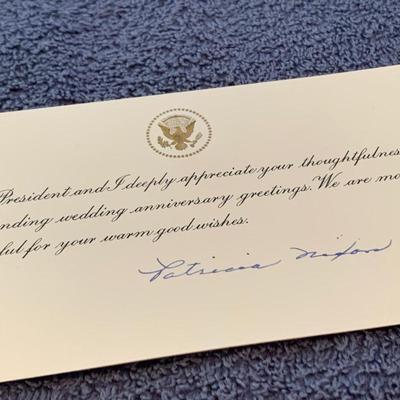 President and I deeply appreciate your thoughtfulnes
nding wedding anniversary greetings. We are mo
ful for your warm good wishes.
Patricia Nixon